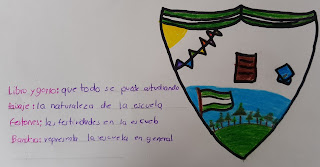 Libro y gorro: que todo se puede estudiando
paisaje: la naturaleza de la escuela
festones: las festividades en la escuela
Bandera: representa la escuela en general